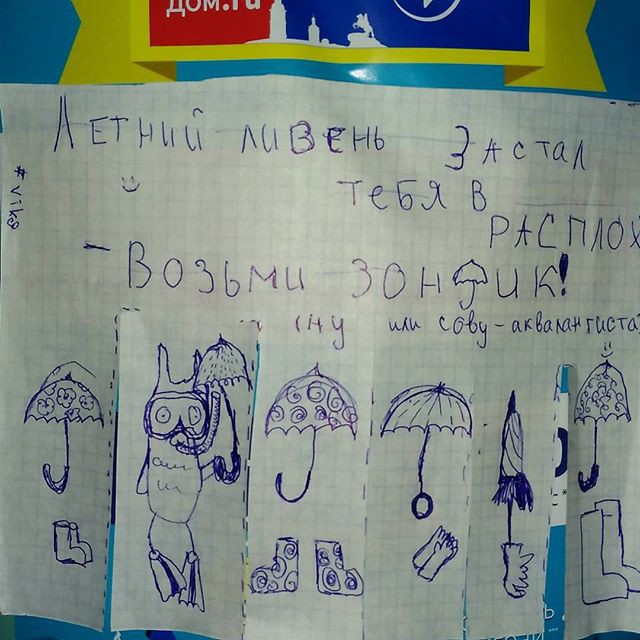 дом.ru
Летний ливень застал
тебя в
расплох
- Возьми зонтик!
(ну или сову-аквалангиста)
#vikg